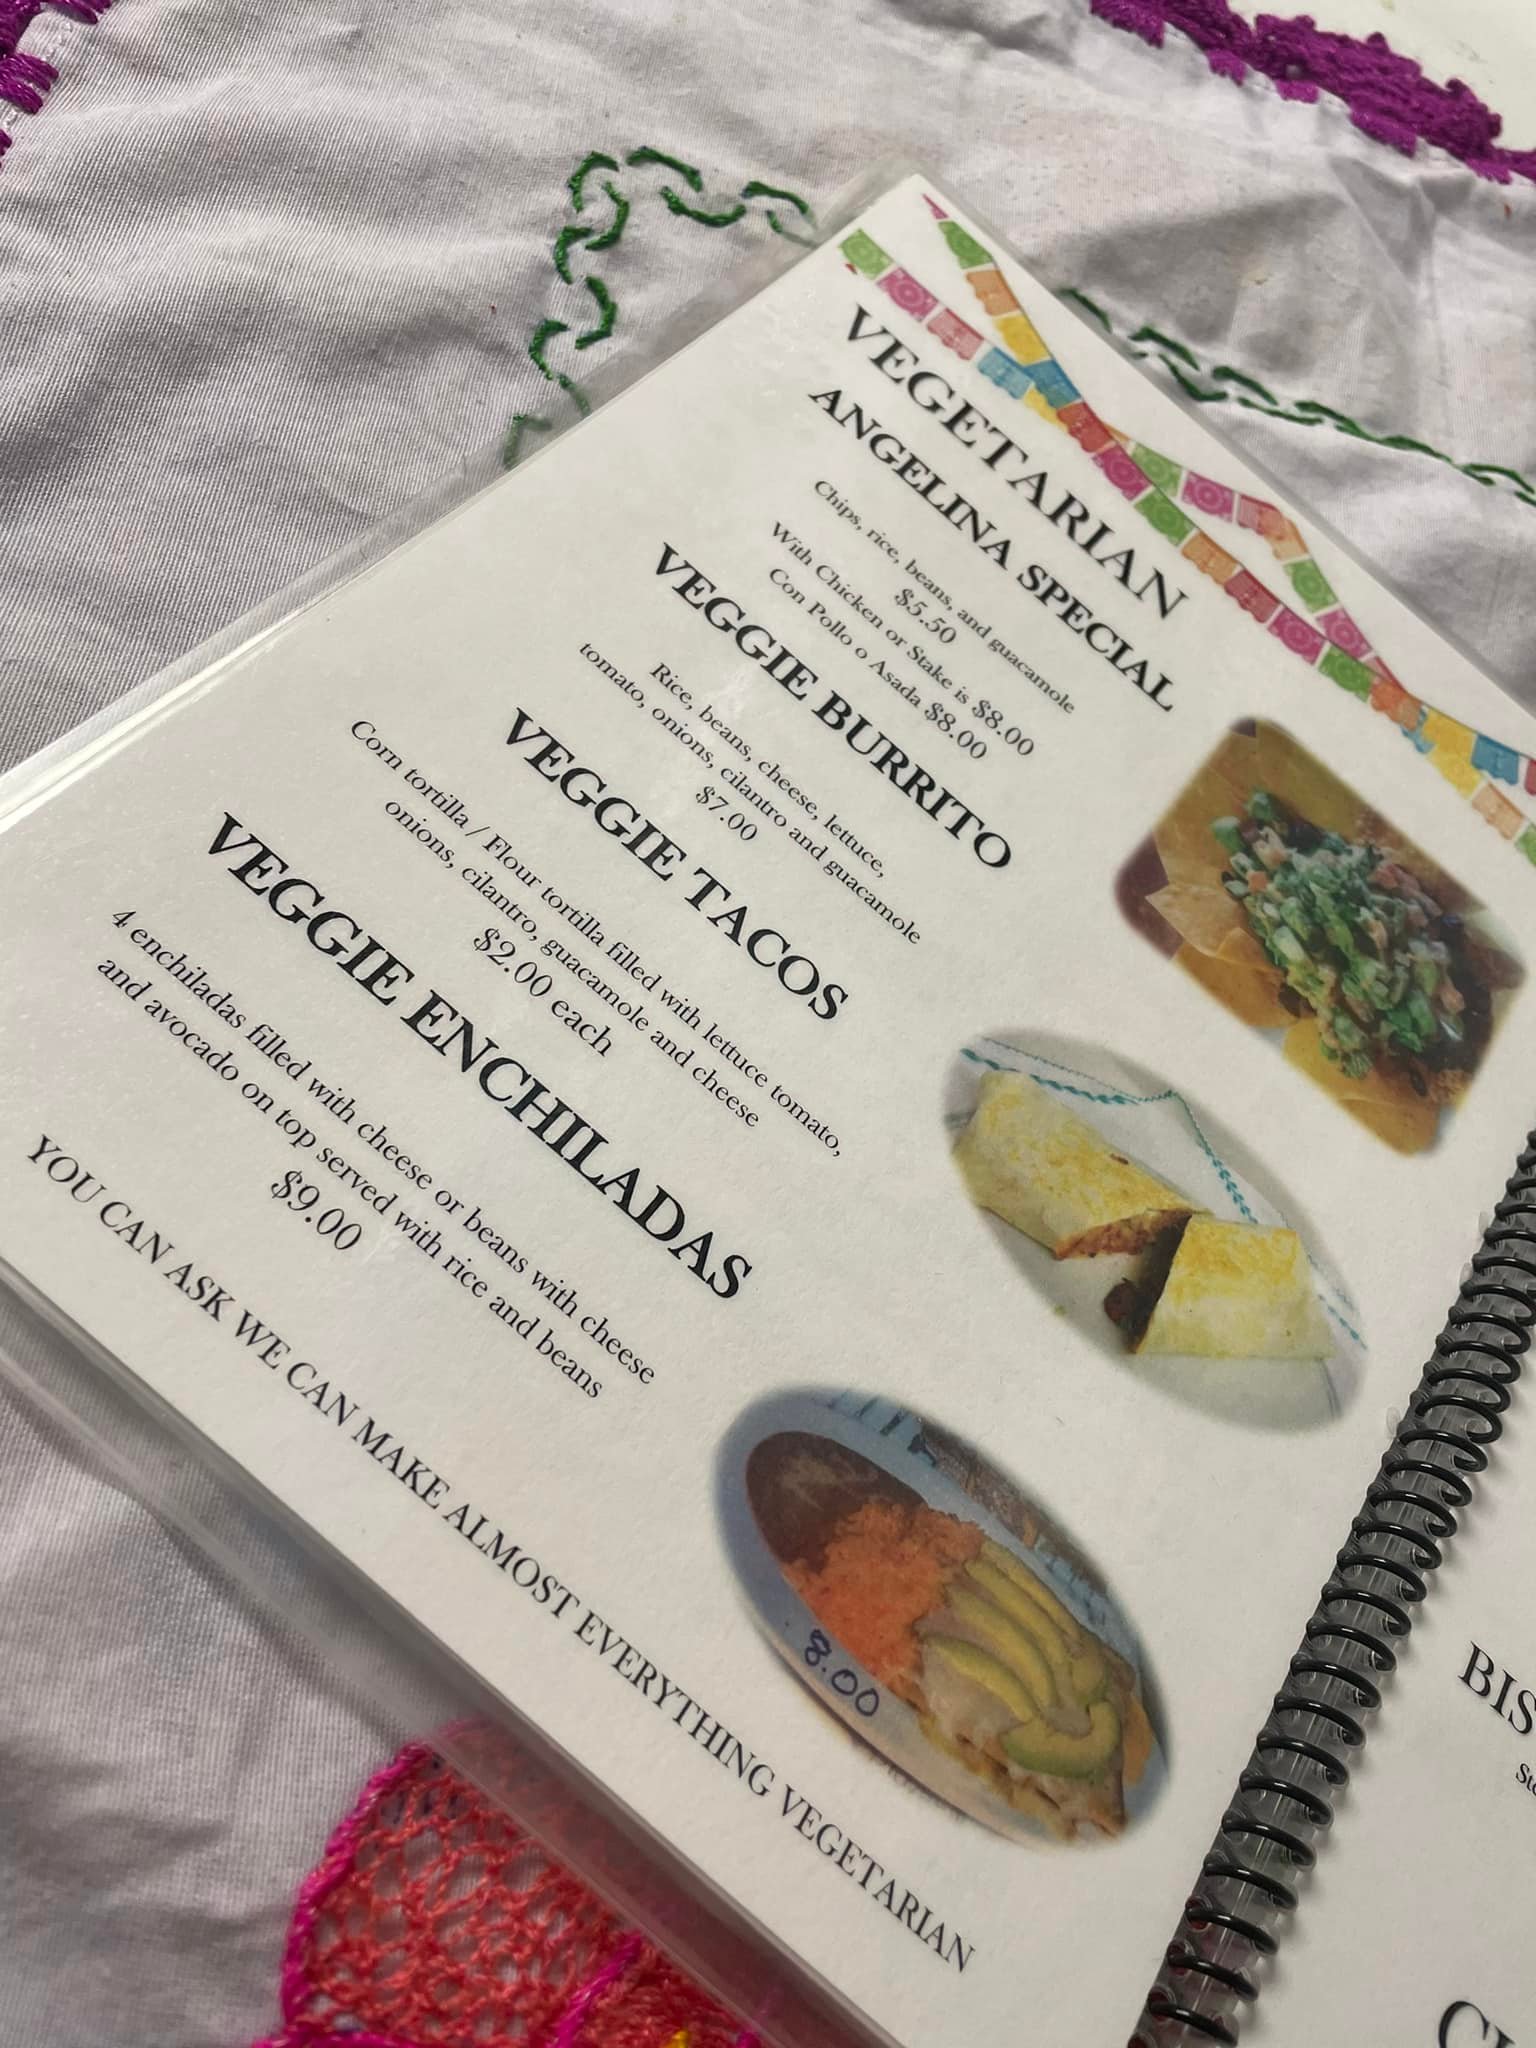 VEGETARIAN
ANGELINA SPECIAL
Chips, rice, beans, and guacamole
$5.50
With Chicken or Stake is $8.00
Con Pollo o Asada $8.00
VEGGIE BURRITO
Rice, beans, cheese, lettuce,
tomato, onions, cilantro and guacamole
$7.00
VEGGIE TACOS
Corn tortilla / Flour tortilla filled with lettuce tomato,
onions, cilantro, guacamole and cheese
$2.00 each
VEGGIE ENCHILADAS
4 enchiladas filled with cheese or beans with cheese
and avocado on top served with rice and beans
$9.00
YOU CAN ASK WE CAN MAKE ALMOST EVERYTHING VEGETARIAN
8.00
BIS